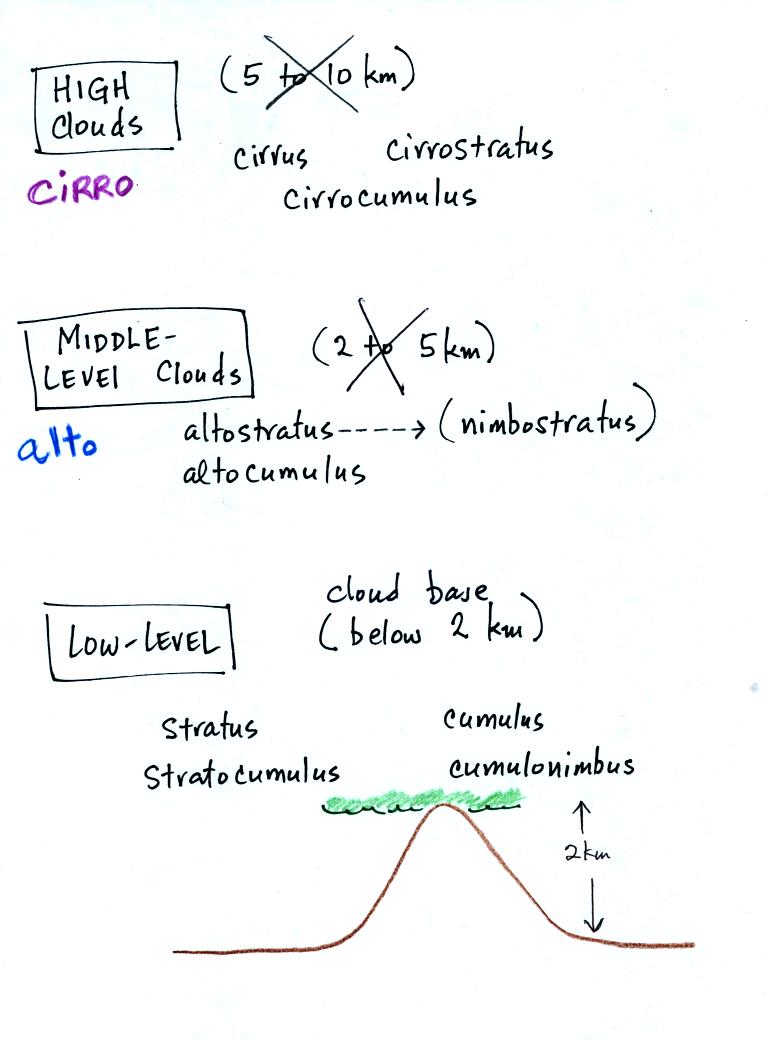 HIGH
Clouds
(5 to 10 km)
cirrus
cirrostratus
cirrocumulus
CiRRO
MIDDLE-
LEVEL Clouds
(2 to 5 km)
alto
altostratus----→ (nimbostratus)
altocumulus
LOW-LEVEL
cloud base
(below 2 km)
Stratus
Cumulus
Stratocumulus
cumulonimbus
2 km